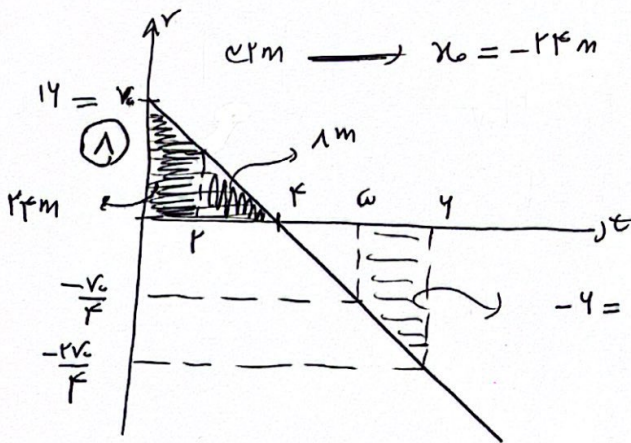 v
۳۲m ⟶ x₀ = -۲۴m
۱۶ = v₀
۸
۸m
۲۴m
۲
۴
۵
۶
t
-v₀/۴
-۶ =
-۲v₀/۴